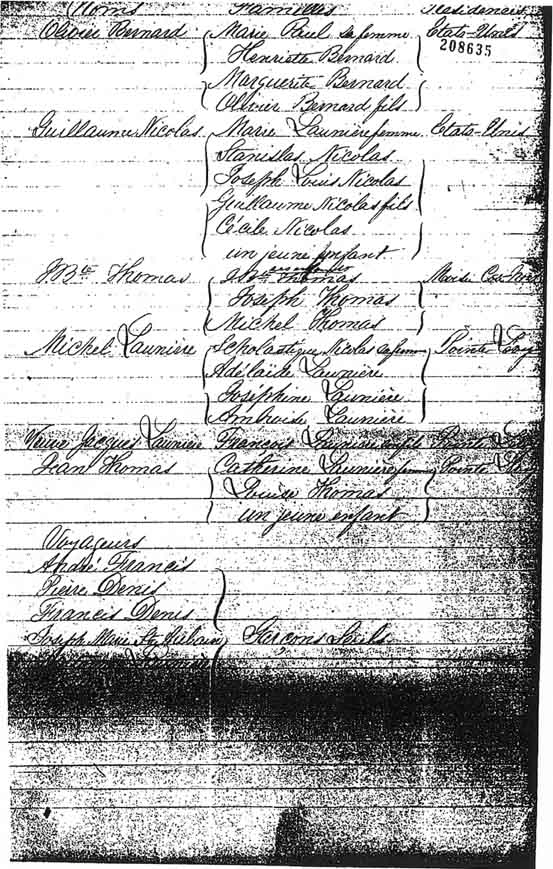 Noms Familles Résidences
Olivier Bernard Marie Paul sa femme Etats-Unis
208635
Henriette Bernard
Marguerite Bernard
Olivier Bernard fils
Guillaume Nicolas Marie Launière femme Etats-Unis
Stanislas Nicolas
Joseph Louis Nicolas
Guillaume Nicolas fils
Cécile Nicolas
un jeune enfant
J. Bte Thomas Thomas
Joseph Thomas
Michel Thomas
Michel Launière Scholastique Nicolas sa femme Pointe Levy
Adélaïde Launière
Joséphine Launière
Ambroise Launière
Veuve Jacques Launière François Launière Pointe
Jean Thomas Catherine Launière femme Pointe Levy
Louise Thomas
un jeune enfant
Voyageurs
André Francis
Pierre Denis
Francis Denis
Joseph Marie Garcons Seuls